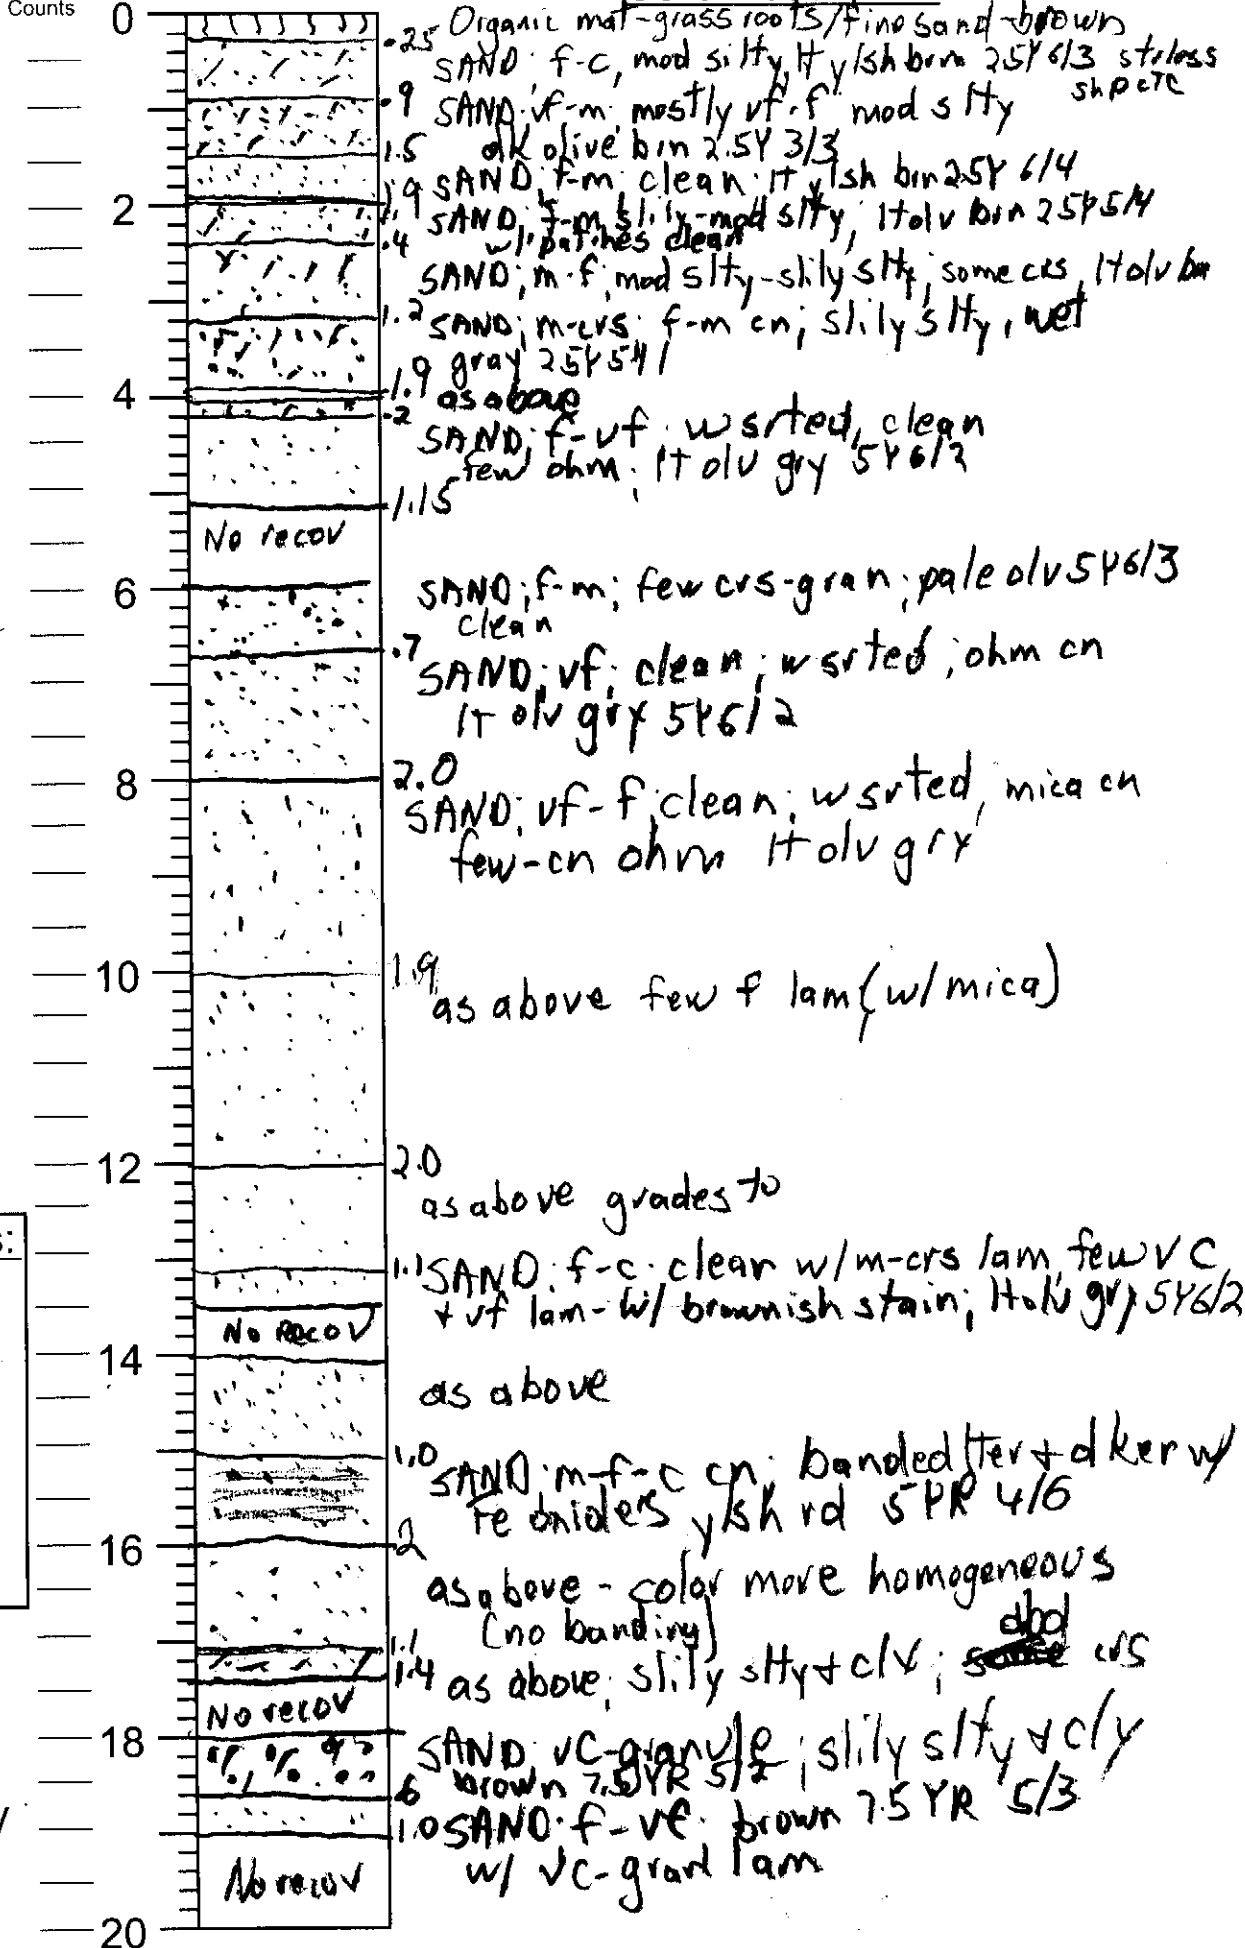 Counts
0
Organic mat-grass roots/fine sand-brown
.25
SAND: f-c, mod silty, lt ylsh brn 2.5Y 6/3 strless
shp ctc
.9
SAND; vf-m; mostly vf-f mod slty
1.5
dk olive brn 2.5Y 3/3
SAND; f-m; clean; lt ylsh brn 2.5Y 6/4
1.9
2
SAND; f-m slily-mod slty; lt olv brn 2.5Y 5/4
w/ patches clean
.4
SAND; m-f; mod slty-slily slty; some crs, lt olv brn
1.2
SAND; m-crs; f-m cn; slily slty, wet
gray 2.5Y 5/1
1.9
4
as above
.2
SAND; f-vf; w srted, clean
few ohm; lt olv gry 5Y 6/2
1.15
No recov
6
SAND; f-m; few crs-gran; pale olv 5Y6/3
clean
.7
SAND; vf; clean; w srted; ohm cn
lt olv gry 5Y6/2
8
2.0
SAND; vf-f; clean; w srted, mica cn
few-cn ohm lt olv gry
10
1.9
as above few f lam (w/mica)
12
2.0
as above grades to
1.1
SAND: f-c. clean w/m-crs lam, few VC
+ vf lam-w/ brownish stain; lt olv gry 5Y6/2
No Recov
14
as above
1.0
SAND; m-f-c cn; banded lter + dker w/
Fe oxides ylsh rd 5YR 4/6
16
2
as above - color more homogeneous
(no banding)
1.1
abd
1.4
as above; slily slty + cly; some crs
No recov
18
SAND: vc-granule; slily slty + cly
brown 7.5YR 5/2
.6
1.0
SAND: f-vf. brown 7.5YR 5/3
w/ vc-granl lam
No recov
20
s: